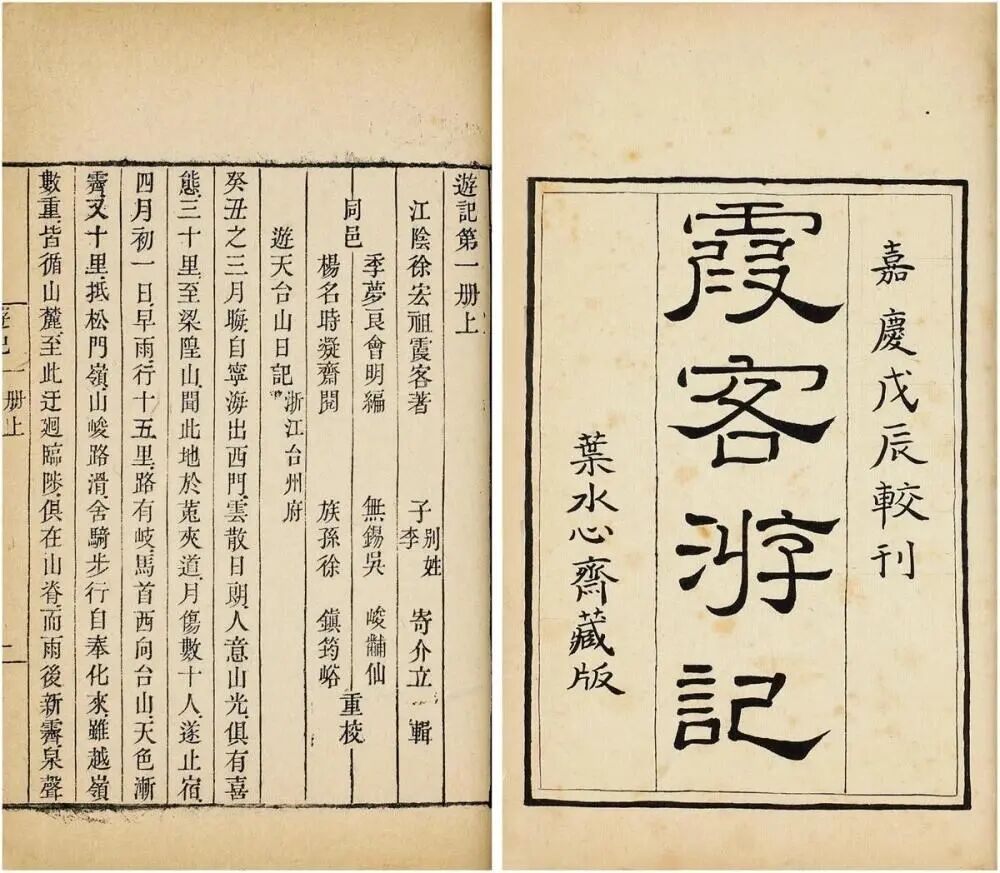 嘉慶戊辰較刊
霞客游記
葉水心齋藏版
遊記第一册上
江陰徐宏祖霞客著　子李别姓寄介立輯
季夢良會明編　無錫吳　峻黼仙
同邑　重校
楊名時凝齋閱　族孫徐　鎮筠峪
遊天台山日記浙江台州府
癸丑之三月晦自寧海出西門雲散日朗人意山光俱有喜
態三十里至梁隍山聞此地於菟夾道月傷數十人遂止宿
四月初一日早雨行十五里路有岐馬首西向台山天色漸
霽又十里抵松門嶺山峻路滑舍騎步行自奉化來雖越嶺
數重皆循山麓至此迂迴臨陟俱在山脊而雨後新霽泉聲
遊記一册上